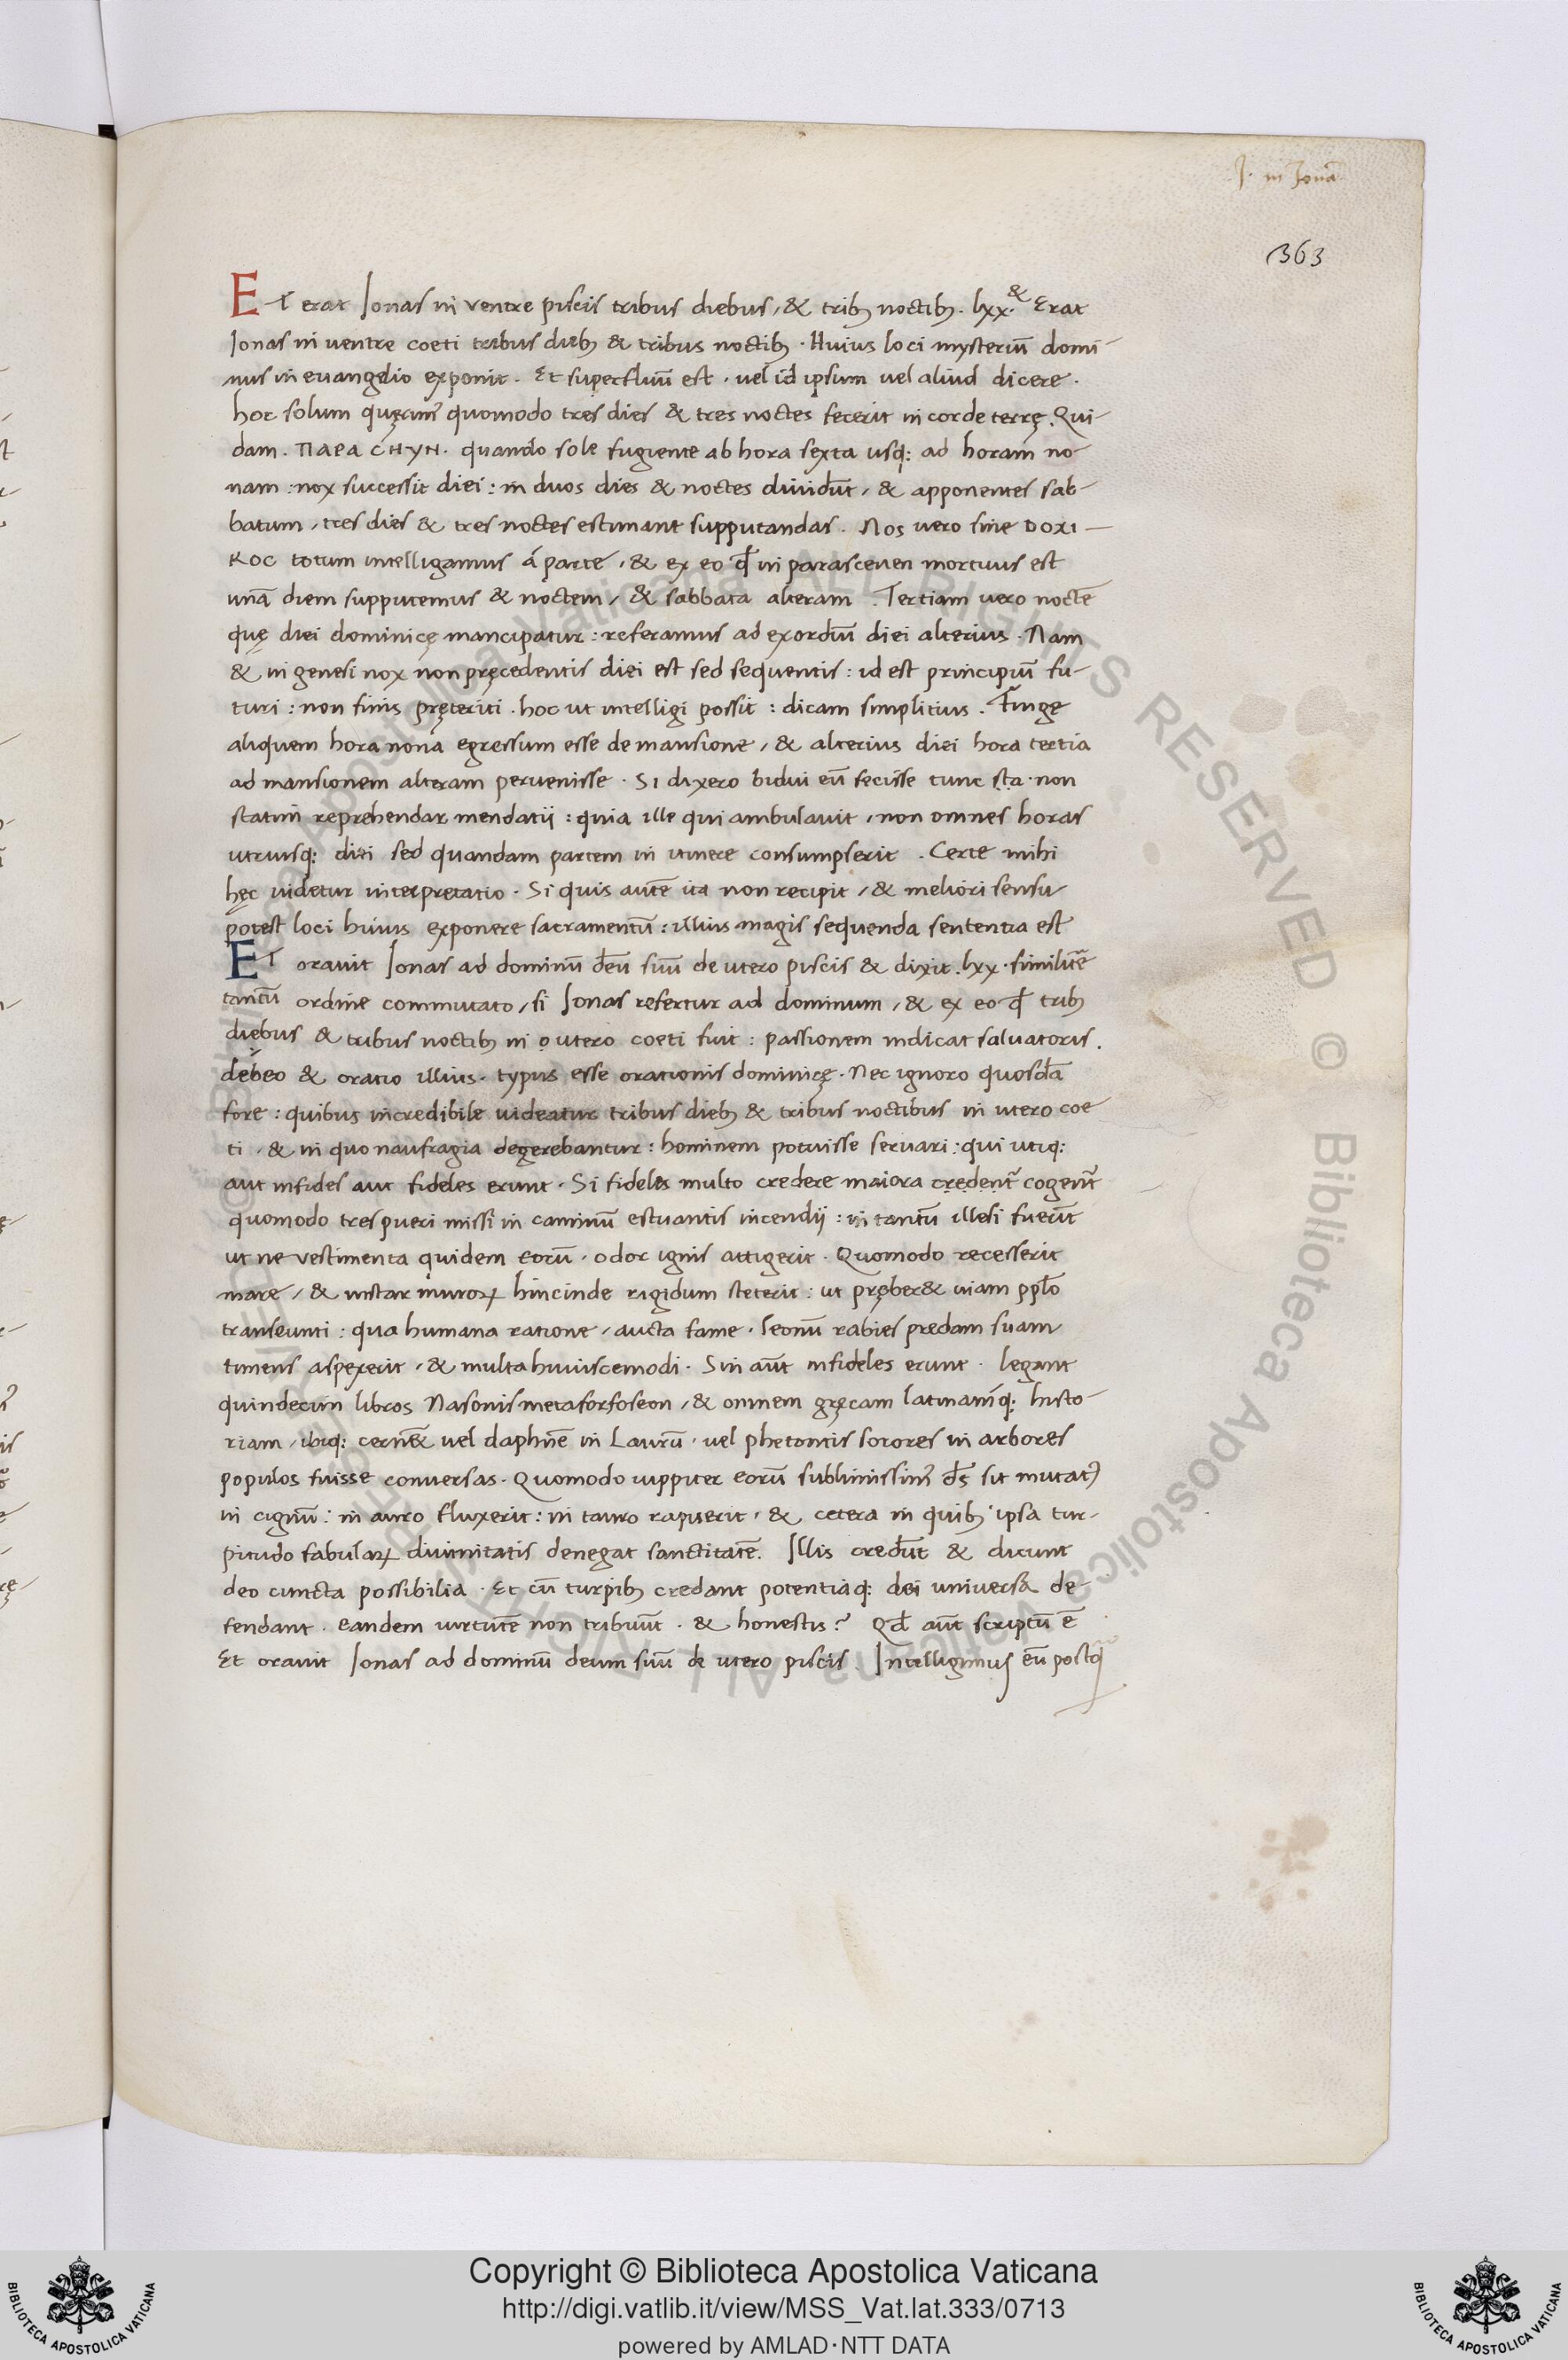 J. in Jonā
363
ET erat Jonas in ventre piscis tribus diebus, & tribꝫ noctibꝫ. lxx. & Erat
Jonas in uentre coeti tribus diebꝫ & tribus noctibꝫ. Huius loci mysteriū domi-
nus in euangelio exponit. Et superfluū est, uel id ipsum uel aliud dicere.
hoc solum quęrim⁹ quomodo tres dies & tres noctes fecerit in corde terrę. Qui-
dam. ΠΑΡΑ CΗΥΝ. quando sole fugiente ab hora sexta usq; ad horam no-
nam: nox successit diei: in duos dies & noctes diuidūt, & apponentes sab-
batum, tres dies & tres noctes estimant supputandas. Nos uero sine DOXI-
KOC totum intelligamus á parte, & ex eo qđ in parasceuen mortuus est
unā diem supputemus & noctem, & sabbata alteram. Tertiam uero noctē
quę diei dominicę mancipatur: referamus ad exordiū diei alterius. Nam
& in genesi nox non pręcedentis diei est sed sequentis: id est principiū fu-
turi: non finis pręteriti. hoc ut intelligi possit: dicam simplicius. Finge
aliquem hora nona egressum esse de mansione, & alterius diei hora tertia
ad mansionem alteram peruenisse. Si dixero bidui eū fecisse tunc sta. non
statim reprehendar mendatii: quia ille qui ambulauit, non omnes horas
utriusq; diei sed quandam partem in itinere consumpserit. Certe mihi
hęc uidetur interpretatio. Si quis autē ita non recipit, & meliori sensu
potest loci huius exponere sacramentū: illius magis sequenda sententia est
ET orauit Jonas ad dominū deū suū de utero piscis & dixit. lxx. similitē
tantū ordine commutato, si Jonas refertur ad dominum, & ex eo qđ tribꝫ
diebus & tribus noctibꝫ in o utero coeti fuit: passionem indicat saluatoris.
debeo & oratio illius. typus esse orationis dominicę. Nec ignoro quosdā
fore: quibus incredibile uideatur tribus diebꝫ & tribus noctibus in utero coe
ti, & in quo naufragia degerebantur: hominem potuisse seruari: qui utiq;
aut infides aut fideles erunt. Si fideles multo credere maiora credent̄ cogent̄
quomodo tres pueri missi in caminū estuantis incendii: in tantū illesi fuerūt
ut ne vestimenta quidem eorū, odor ignis attigerit. Quomodo recesserit
mare, & instar muroꝝ hincinde rigidum steterit: ut pręber& uiam pplō
transeunti: qua humana ratione, aucta fame, leonū rabies predam suam
timens aspexerit, & multa huiuscemodi. Sin aūt infideles erunt. legant
quindecim libros Nasonis metaforfoseon, & omnem gręcam latinamq; histo-
riam, ibiq; cernēt uel daphnē in Laurū, uel phetontis sorores in arbores
populos fuisse conuersas. Quomodo iuppiter eorū sublimissim⁹ d̄s sit mutat⁹
in cignū: in auro fluxerit: in tauro rapuerit, & cetera in quibꝫ ipsa tur-
pitudo fabulaꝝ diuinitatis denegat sanctitatē. Illis credūt & dicunt
deo cuncta possibilia. Et cū turpibꝫ credant potentiaq; dei uniuersa de-
fendant. eandem uirtutē non tribuūt. & honestis? Qđ aūt scriptū ē
Et orauit Jonas ad dominū deum suū de utero piscis. Intelligimus eū postq̄
Copyright © Biblioteca Apostolica Vaticana
http://digi.vatlib.it/view/MSS_Vat.lat.333/0713
powered by AMLAD·NTT DATA
BIBLIOTECA APOSTOLICA VATICANA
BIBLIOTECA APOSTOLICA VATICANA